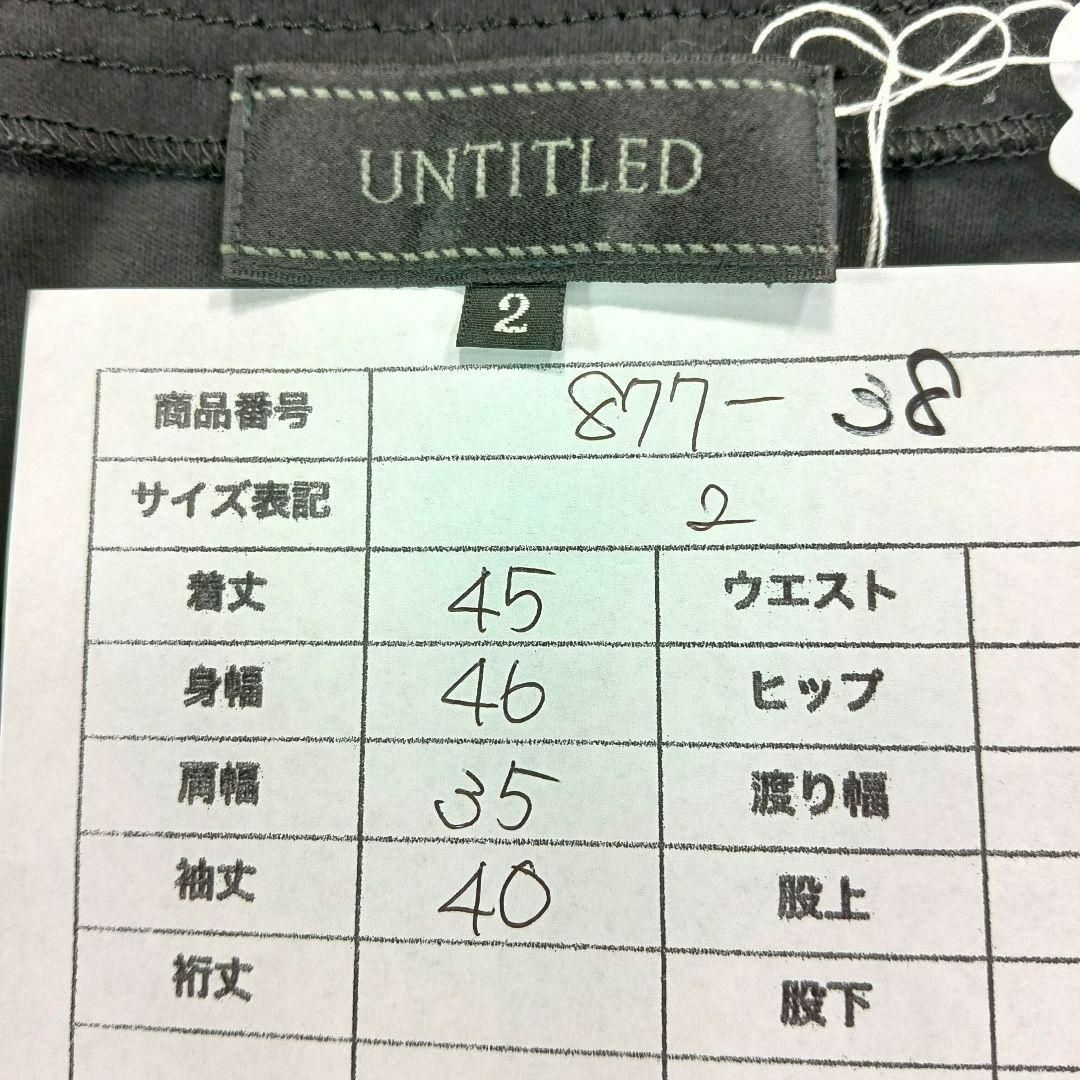 UNTITLED
2
商品番号 877-38
サイズ表記 2
着丈 45 ウエスト
身幅 46 ヒップ
肩幅 35 渡り幅
袖丈 40 股上
裄丈 股下